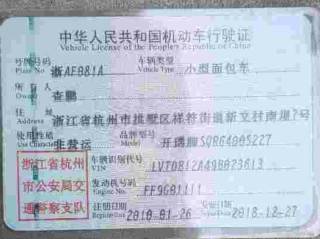 中华人民共和国机动车行驶证
Vehicle License of the People's Republic of China
号牌号码 浙AF081A 车辆类型 小型面包车
Plate No. Vehicle Type
所有人 查鹏
Owner
住址 浙江省杭州市拱墅区祥符街道新文村南堰7号
Address
使用性质 非营运 品牌型号 开瑞牌SQR6400S227
Use Character Model
浙江省杭州 车辆识别代号
VIN
市公安局交 发动机号码
Engine No.
通警察支队 注册日期 2010-01-26 发证日期 2018-12-27
Register Date Issue Date